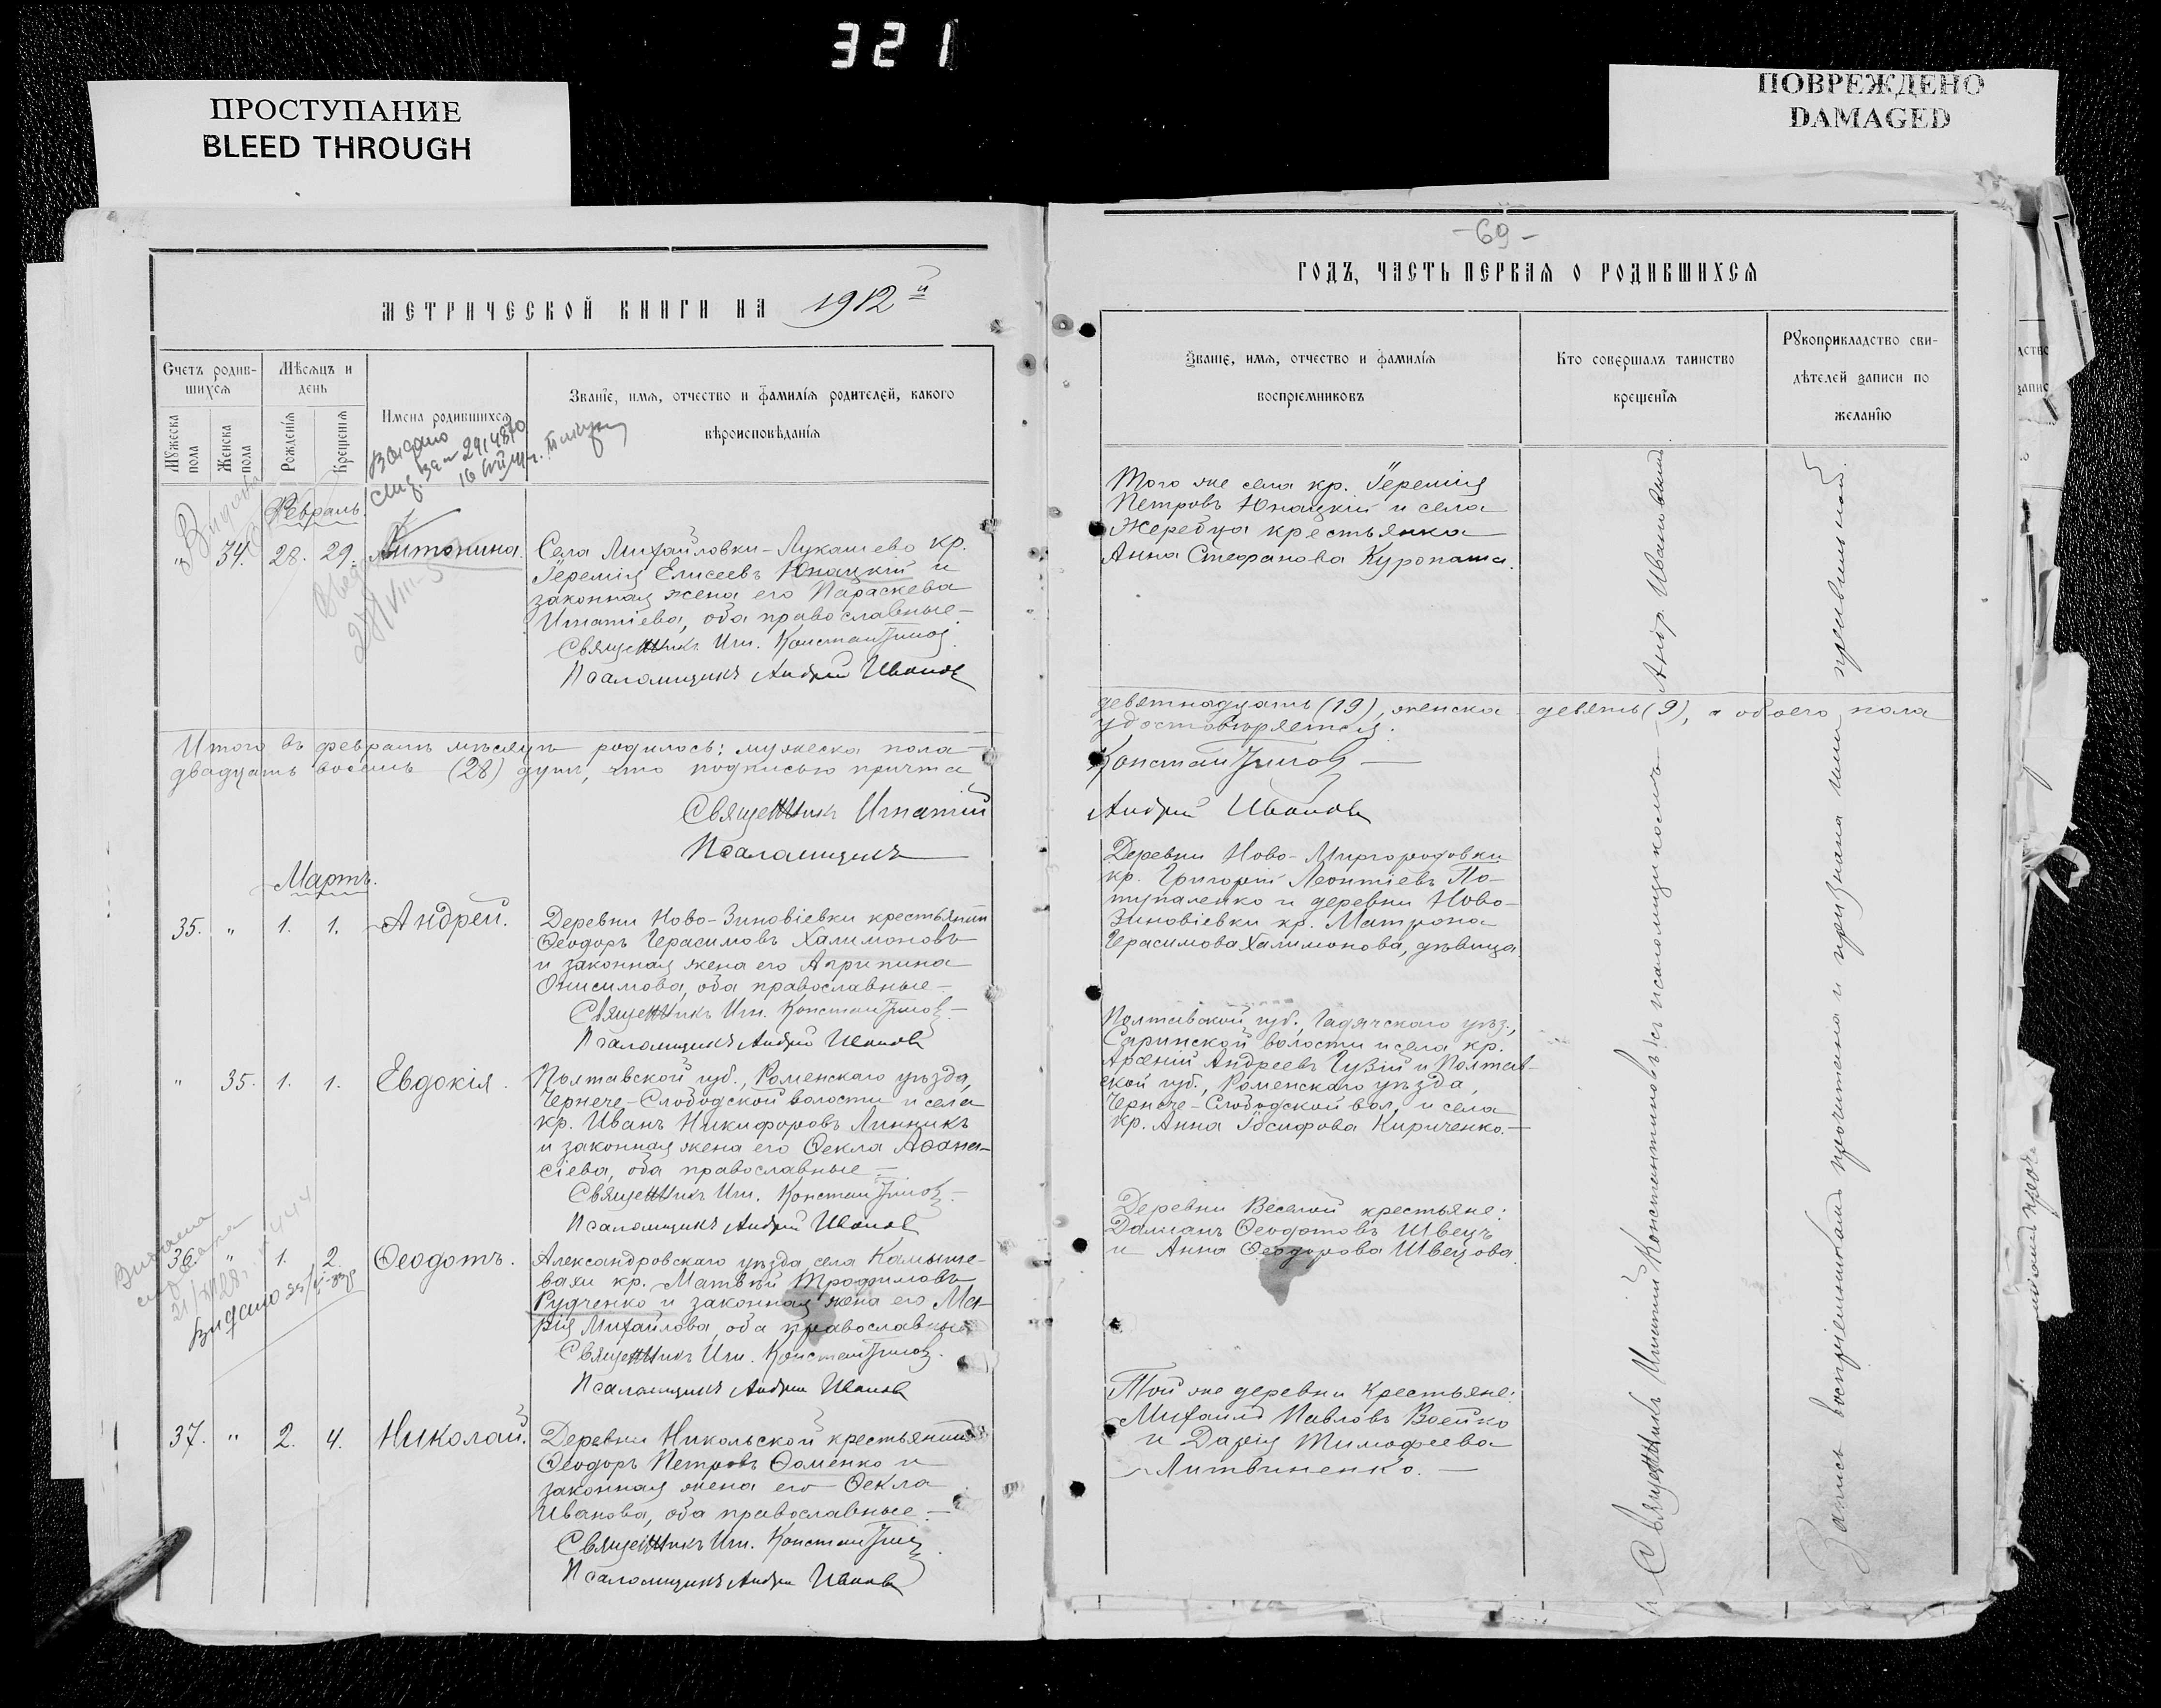 321
ПРОСТУПАНИЕ
BLEED THROUGH
ПОВРЕЖДЕНО
DAMAGED
МЕТРИЧЕСКОЙ КНИГИ НА 1912й
Счетъ родив-
шихся
Мѣсяцъ и
день
Мужеска
пола
Женска
пола
Рожденія
Крещенія
Имена родившихся
Званіе, имя, отчество и фамилія родителей, какого
вѣроисповѣданія
Февраль.
" 34. 28. 29. Антонина.
Села Михайловки-Лукашево кр.
Іеремія Елисеевъ Юнацкій и
законная жена его Параскева
Игнатіева, оба православные.
Священникъ Игн. Константиновъ.
Псаломщикъ Андрей Ивановъ
Итого въ февралѣ мѣсяцѣ родилось: мужеска пола
двадцать восемь (28) душъ, что подписью причта
Священникъ Игнатій
Псаломщикъ
Мартъ.
35. " 1. 1. Андрей.
Деревни Ново-Зиновіевки крестьянин
Ѳеодоръ Герасимовъ Халимоновъ
и законная жена его Агрипина
Онисимова, оба православные.
Священникъ Игн. Константиновъ.
Псаломщикъ Андрей Ивановъ
" 35. 1. 1. Евдокія.
Полтавской губ., Роменскаго уѣзда,
Чернече-Слободской волости и села
кр. Иванъ Никифоровъ Линникъ
и законная жена его Ѳекла Аѳана-
сіева, оба православные.
Священникъ Игн. Константиновъ.
Псаломщикъ Андрей Ивановъ
36. " 1. 2. Ѳеодотъ.
Видано
Александровскаго уѣзда, села Камыше-
вахи кр. Матвѣй Трофимовъ
Рудченко и законная жена его Ма-
рія Михайлова, оба православные
Священникъ Игн. Константиновъ.
Псаломщикъ Андрей Ивановъ
37. " 2. 4. Николай.
Деревни Никольской крестьянинъ
Ѳеодоръ Петровъ Ѳоменко и
законная жена его Ѳекла
Иванова, оба православные.
Священникъ Игн. Константиновъ.
Псаломщикъ Андрей Ивановъ
-69-
ГОДЪ, ЧАСТЬ ПЕРВАЯ О РОДИВШИХСЯ
Званіе, имя, отчество и фамилія
воспріемниковъ
Кто совершалъ таинство
крещенія
Рукоприкладство сви-
дѣтелей записи по
желанію
Того же села кр. Іеремія
Петровъ Юнацкій и села
Жеребца крестьянка
Анна Стефанова Куропата.
девятнадцать (19), женска девять (9), а обоего пола
удостовѣряется.
Константиновъ
Андрей Ивановъ
Деревни Ново-Миргородовки
кр. Григорій Леонтіевъ По-
тупаленко и деревни Ново-
Зиновіевки кр. Матрона
Герасимова Халимонова, дѣвица.
Полтавской губ., Гадячскаго уѣз.,
Саринской волости и села кр.
Арсеній Андреевъ Гузій и Полтав-
ской губ., Роменскаго уѣзда,
Чернече-Слободской вол. и села
кр. Анна Іосифова Кириченко.
Деревни Веселой крестьяне:
Даміанъ Ѳеодотовъ Швецъ
и Анна Ѳеодорова Швецова.
Той же деревни крестьяне:
Михаилъ Павловъ Воейко
и Дарія Тимофеева
Литвиненко.
Священникъ Игнатій Константиновъ съ псаломщикомъ Андр. Ивановымъ
Запись воспріемниками прочитана и признана ими правильной.